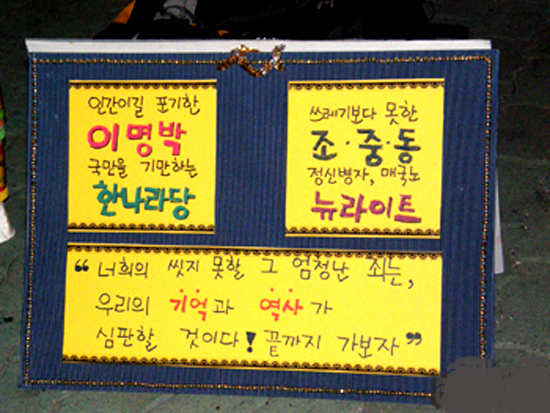 인간이길 포기한
이명박
국민을 기만하는
한나라당
쓰레기보다 못한
조·중·동
정신병자, 매국노
뉴라이트
“너희의 씻지 못할 그 엄청난 죄는,
우리의 기억과 역사가
심판할 것이다! 끝까지 가보자”